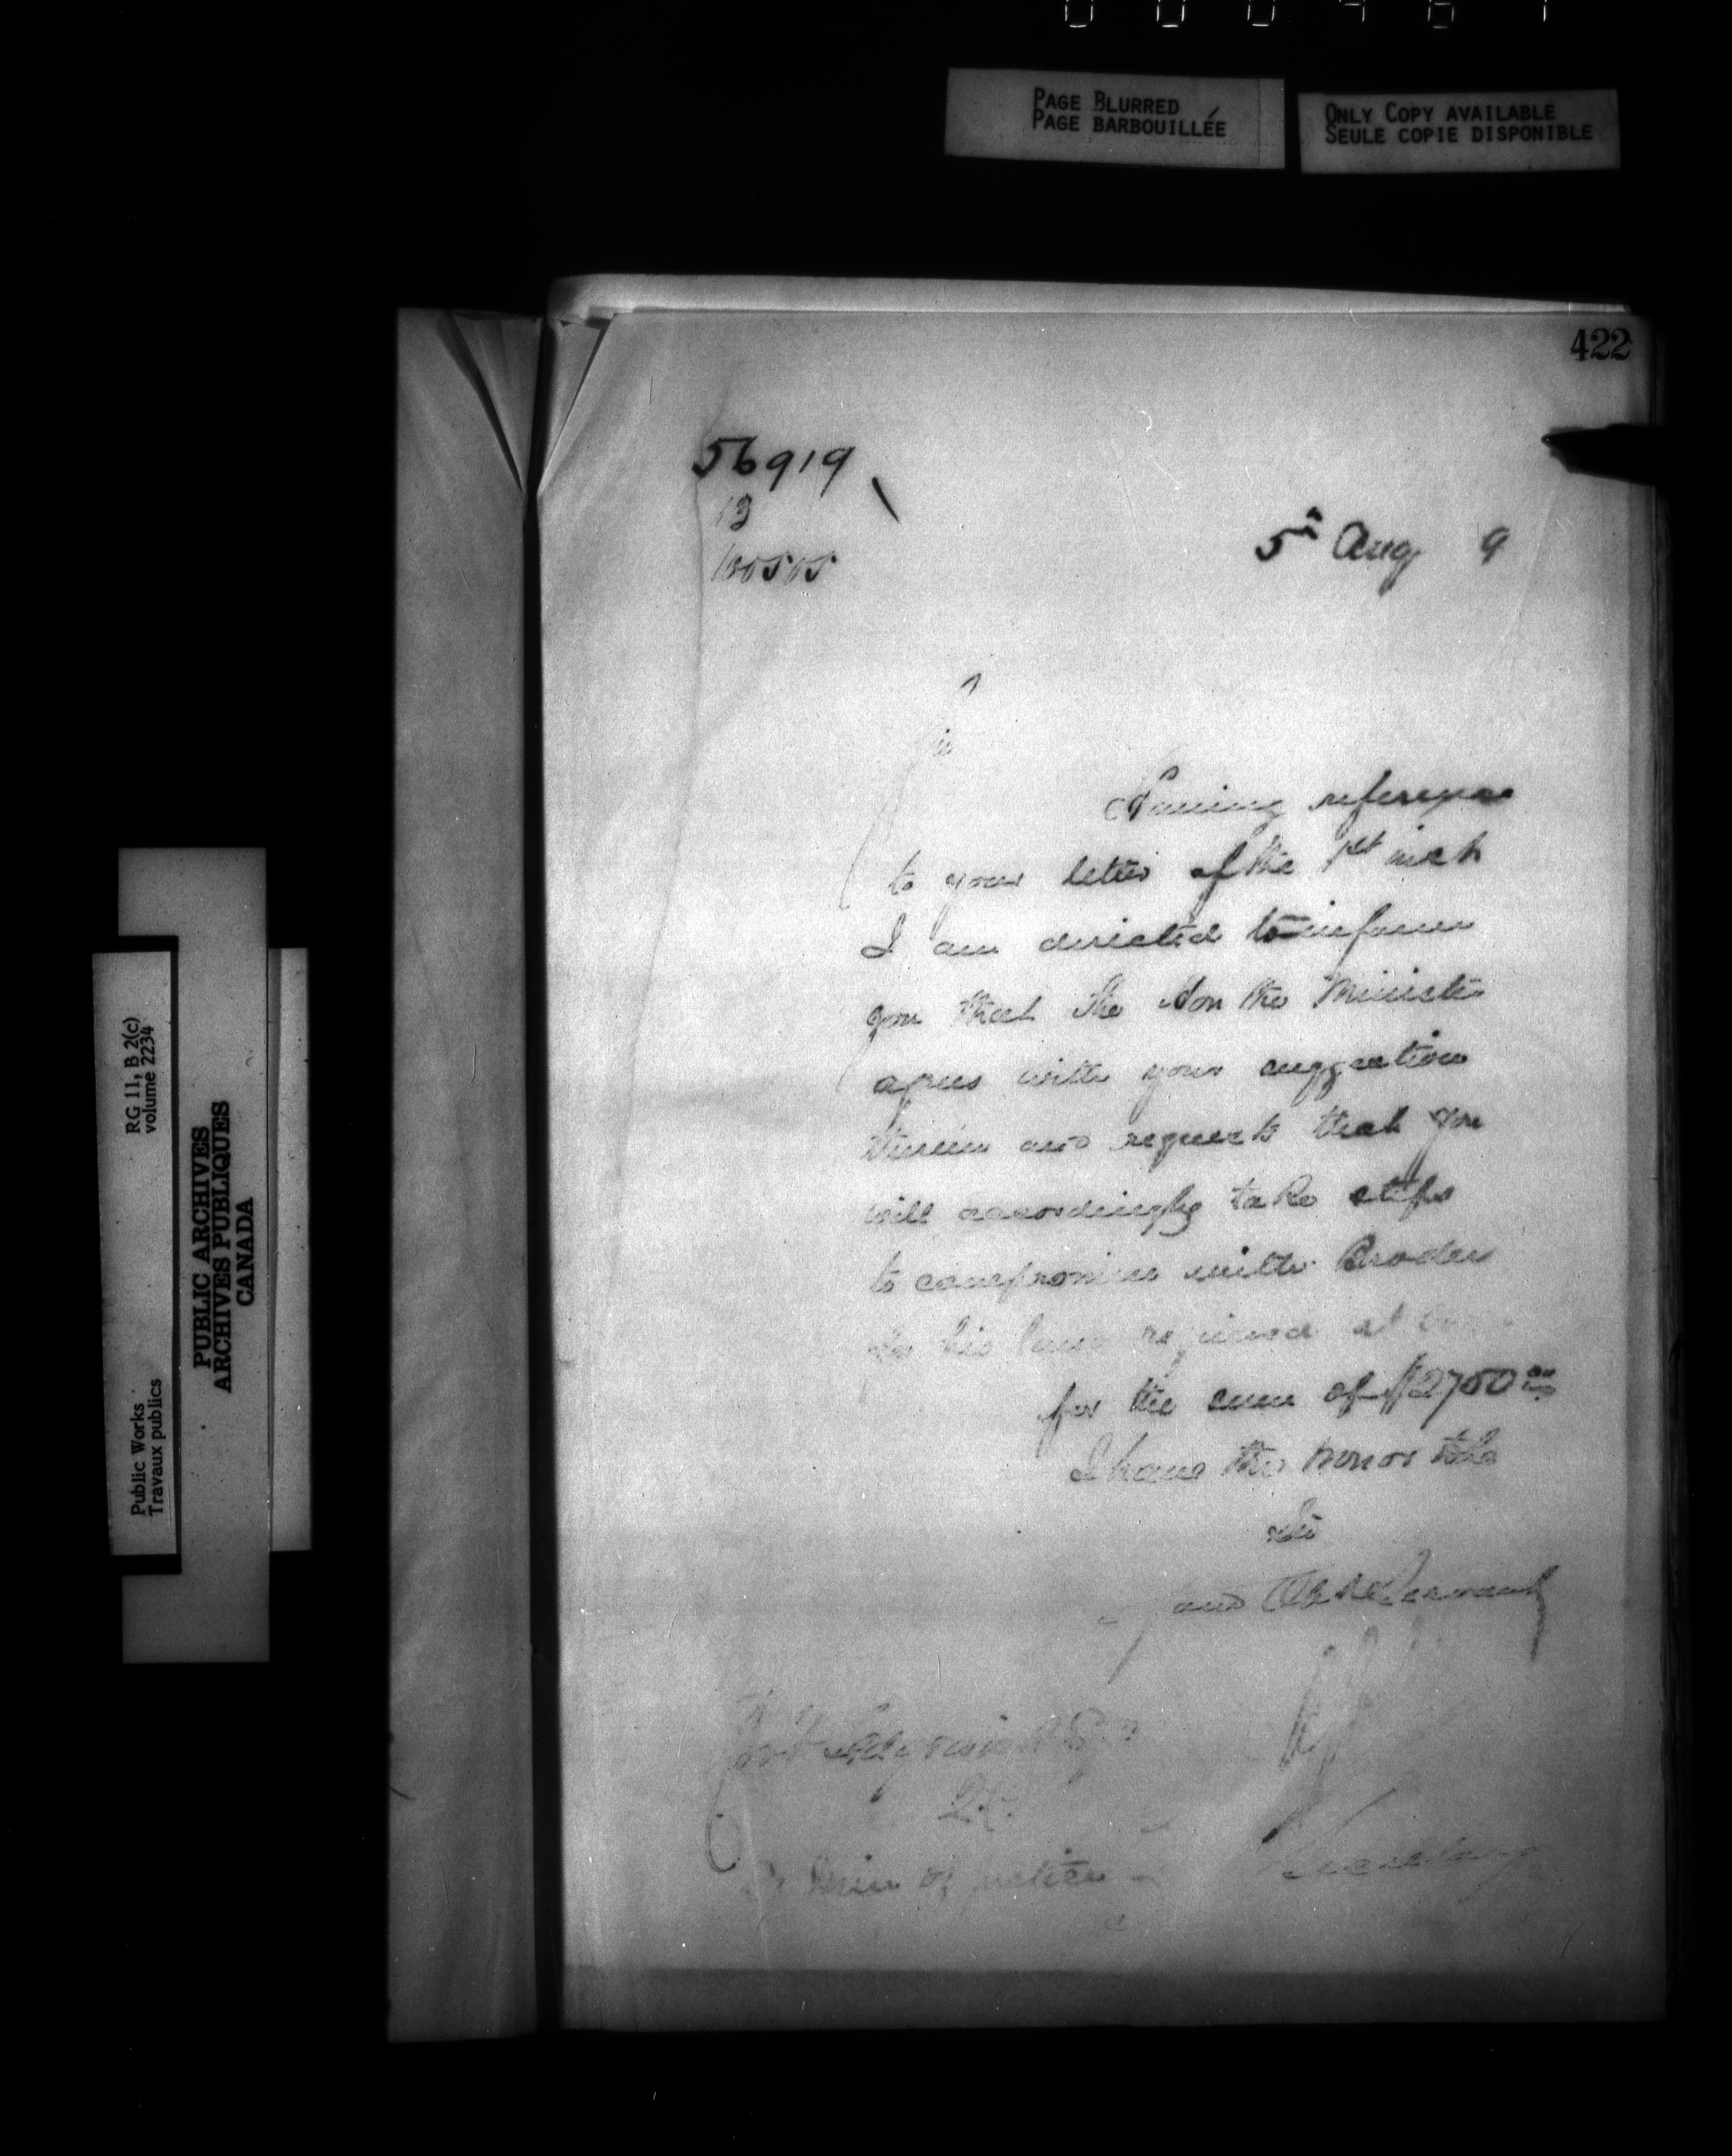 PAGE BLURRED
PAGE BARBOUILLÉE
ONLY COPY AVAILABLE
SEULE COPIE DISPONIBLE
422
56919
13
5th Aug 9
Having reference
to your letter of the 1st inst
I am directed to inform
you that the Hon the Minister
agrees with your suggestion
therein and requests that you
will accordingly take steps
to compromise with
his land required at
for the sum of $2750 00
I have the honor to be
Sir
Obdt Servant
Secretary
Min of Justice
RG 11, B 2(c)
volume 2234
Public Works
Travaux publics
PUBLIC ARCHIVES
ARCHIVES PUBLIQUES
CANADA